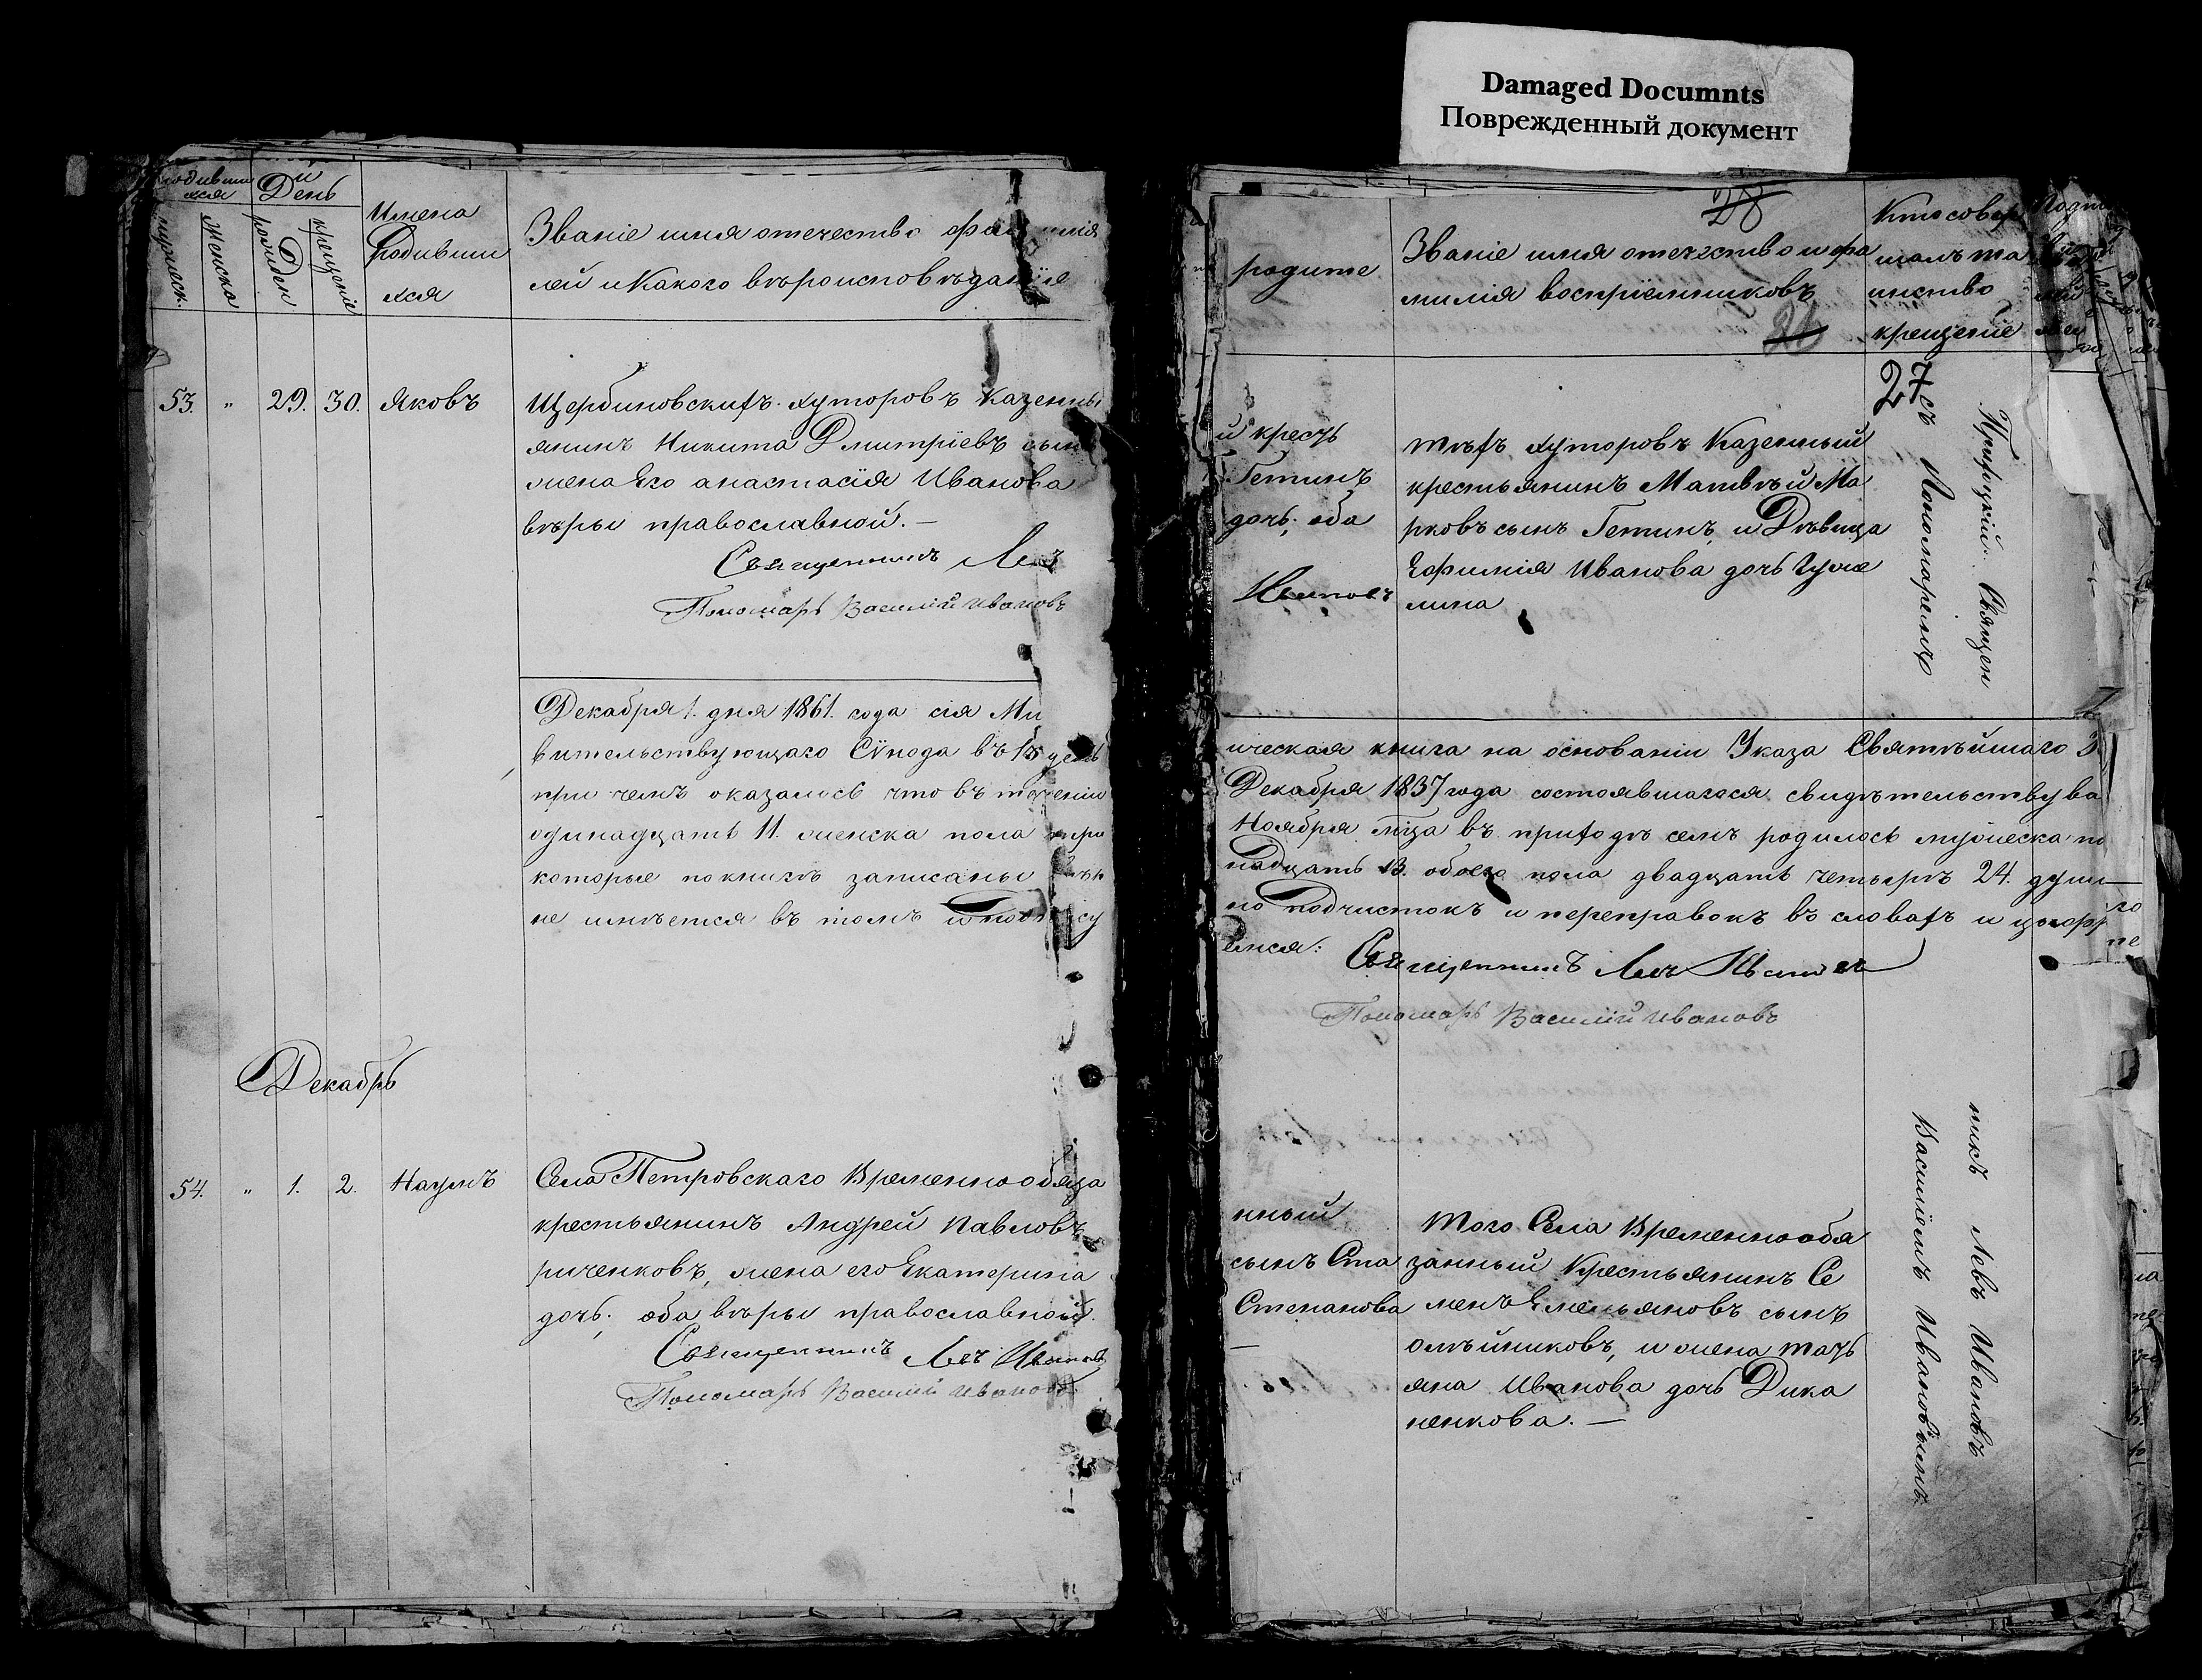 Damaged Documnts
Поврежденный документ
Родивши
хся
День
мужеск.
Женска
рожден
крещенія
Имена
родивши
хся
Званіе имя отечество
лей и какого вѣроисповѣданія
53. " 29. 30. Яковъ
Щербиновскихъ хуторовъ Казенны
янинъ Никита Дмитріевъ сынъ
жена Его анастасія Иванова
вѣры православной. —
Священникъ Левъ
Пономарь Василій Ивановъ
Декабря 1. дня 1861. года сія
вительствующаго Сѵнода въ
при чемъ оказалось что въ теченіи
одинадцать 11. женска пола
которые по книгѣ записаны
не имѣется въ томъ и
Декабрь
54. " 1. 2. Наумъ
Села Петровскаго Временнообяза
крестьянинъ Андрей Павловъ
риченковъ, жена его Екатерина
дочь; оба вѣры православной.
Священникъ Левъ Ивановъ
Пономарь Василій Ивановъ
28
родите
Званіе имя отечество и фа
милія воспріемниковъ
Кто совер
шалъ та
инство
крещеніе
27
й кресть
Гетинъ
дочь; оба
Ивановъ
тѣхъ хуторовъ Казенный
крестьянинъ Матвѣй Ма
рковъ сынъ Гетинъ, и Дѣвица
Ефимія Иванова дочь Гуме
лина
съ Пономаремъ
Приходскій Священ
ическая книга на основаніи Указа Святѣйшаго
Декабря 1837 года состоявшагося свидѣтельствова
Ноября мца въ приходѣ семъ родилось мужеска
надцать 13. обоего пола двадцать четыре 24. души
но подчистокъ и переправокъ въ словахъ и
емся:
Священникъ Левъ Ивановъ
Пономарь Василій Ивановъ
нный
сынъ Ста
Степанова
—
того Села Временнообя
занный Крестьянинъ Се
менъ Емельяновъ сынъ
олѣйниковъ, и жена тать
яна Иванова дочь Дика
ненкова. —
Василіемъ Ивановымъ.
никъ Левъ Ивановъ